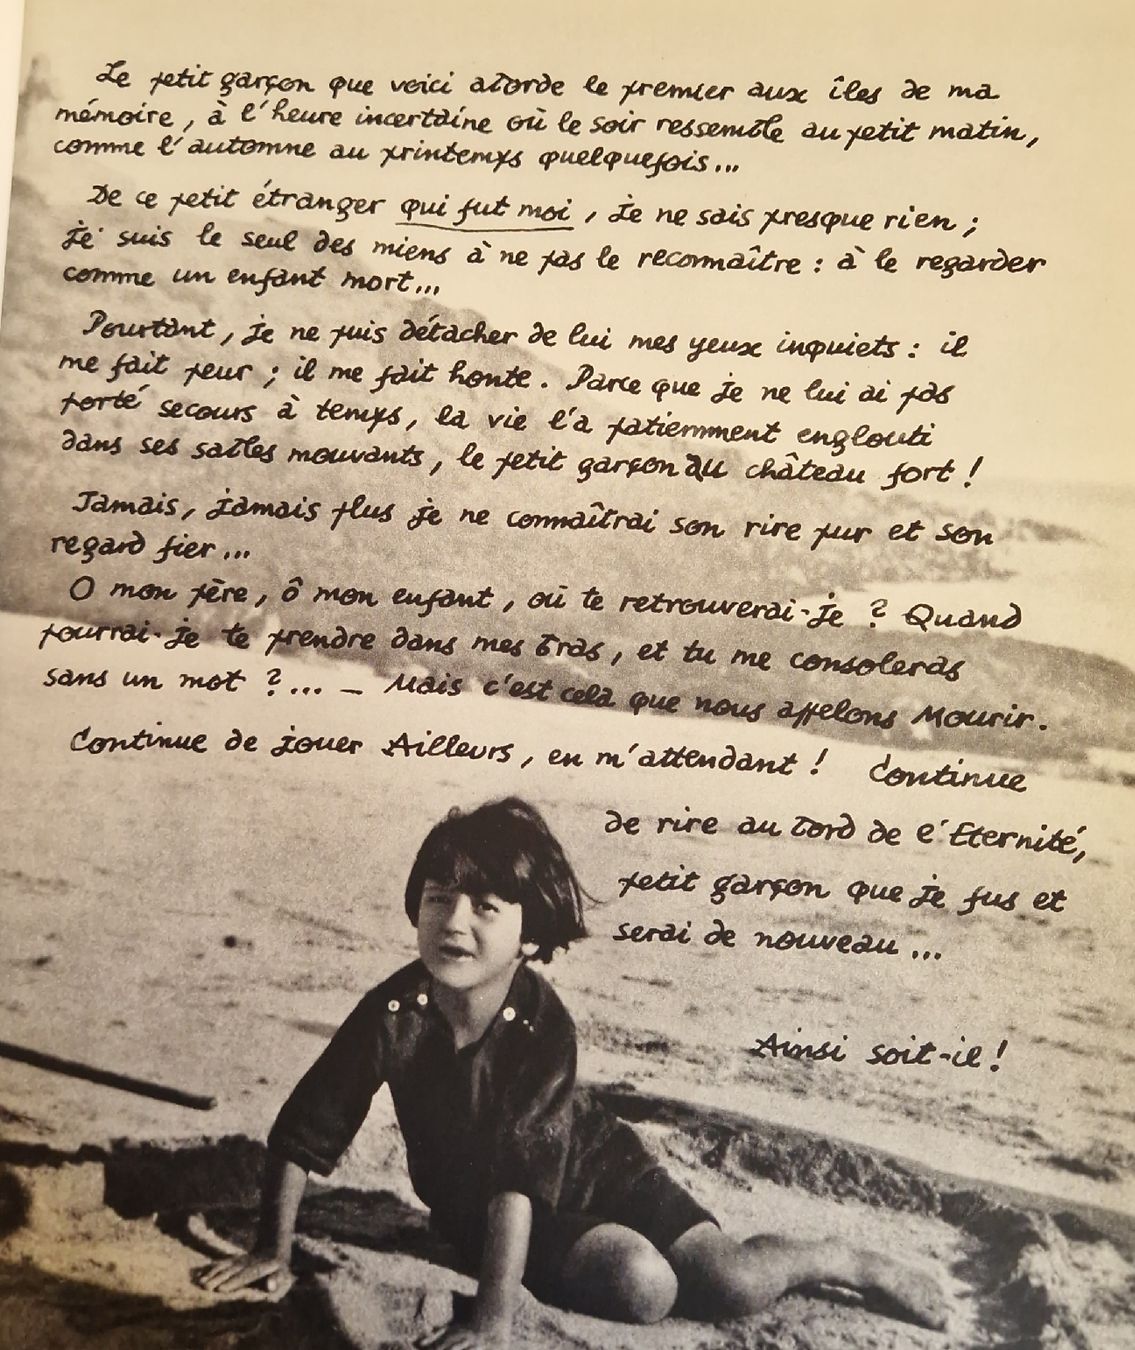 Le petit garçon que voici aborde le premier aux îles de ma
mémoire, à l'heure incertaine où le soir ressemble au petit matin,
comme l'automne au printemps quelquefois...
De ce petit étranger qui fut moi, je ne sais presque rien ;
je suis le seul des miens à ne pas le reconnaître : à le regarder
comme un enfant mort...
Pourtant, je ne puis détacher de lui mes yeux inquiets : il
me fait peur ; il me fait honte. Parce que je ne lui ai pas
porté secours à temps, la vie l'a patiemment englouti
dans ses sables mouvants, le petit garçon au château fort !
Jamais, jamais plus je ne connaîtrai son rire pur et son
regard fier...
O mon père, ô mon enfant, où te retrouverai-je ? Quand
pourrai-je te prendre dans mes bras, et tu me consoleras
sans un mot ?... — Mais c'est cela que nous appelons Mourir.
Continue de jouer Ailleurs, en m'attendant ! Continue
de rire au bord de l'Eternité,
petit garçon que je fus et
serai de nouveau...
Ainsi soit-il !